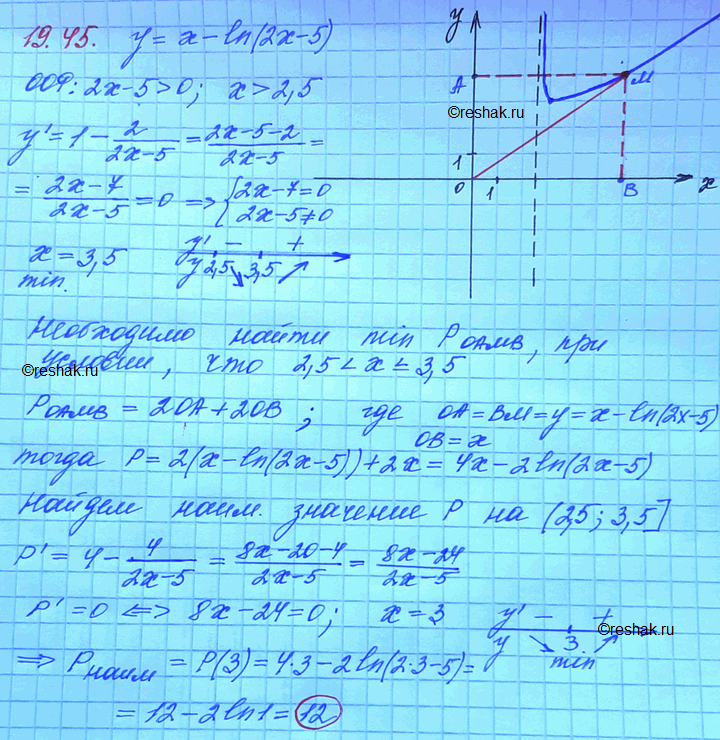 19.45. y = x - ln(2x-5)
ООФ: 2x-5>0; x>2,5
y' = 1 - 2/(2x-5) = (2x-5-2)/(2x-5) =
= (2x-7)/(2x-5) = 0 => { 2x-7=0
2x-5≠0
x = 3,5
min.
y' - +
y 2,5 ↘ 3,5 ↗
y
A
M
©reshak.ru
1
0 1 B x
Необходимо найти min P OAMB, при
условии, что 2,5 < x ≤ 3,5
©reshak.ru
P OAMB = 2OA + 2OB ; где OA = BM = y = x - ln(2x-5)
OB = x
тогда P = 2(x - ln(2x-5)) + 2x = 4x - 2ln(2x-5)
Найдем наим. значение P на (2,5; 3,5]
P' = 4 - 4/(2x-5) = (8x-20-4)/(2x-5) = (8x-24)/(2x-5)
P' = 0 <=> 8x-24=0; x = 3
y' - +
y ↘ 3 ↗
min
©reshak.ru
=> P наим = P(3) = 4·3 - 2ln(2·3-5) =
= 12 - 2ln1 = 12